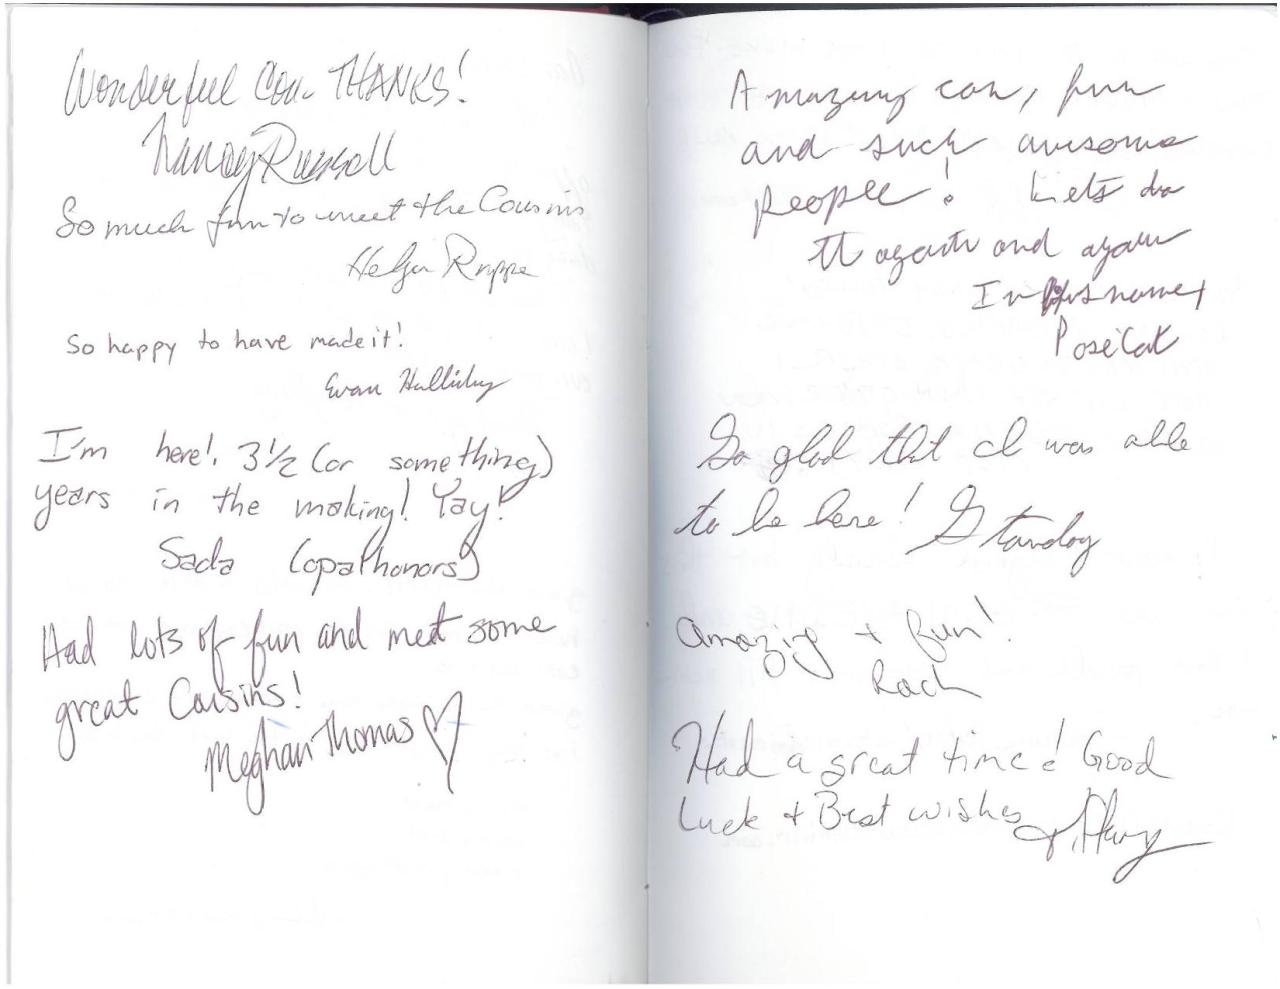 Wonderful Con. THANKS!
Nancy Russell
So much fun to meet the Cousins
Helga Ruppe
So happy to have made it!
Evan
I'm here! 3 1/2 (or something)
years in the making! Yay!
Sada (opalhonors)
Had lots of fun and meet some
great Cousins!
Meghan Thomas ♡
Amazing con, fun
and such awesome
people! Lets do
it again and again
PoseiCat
So glad that I was able
to be here!
Amazing + fun!
Rach
Had a great time! Good
Luck + Best wishes
Tiffany